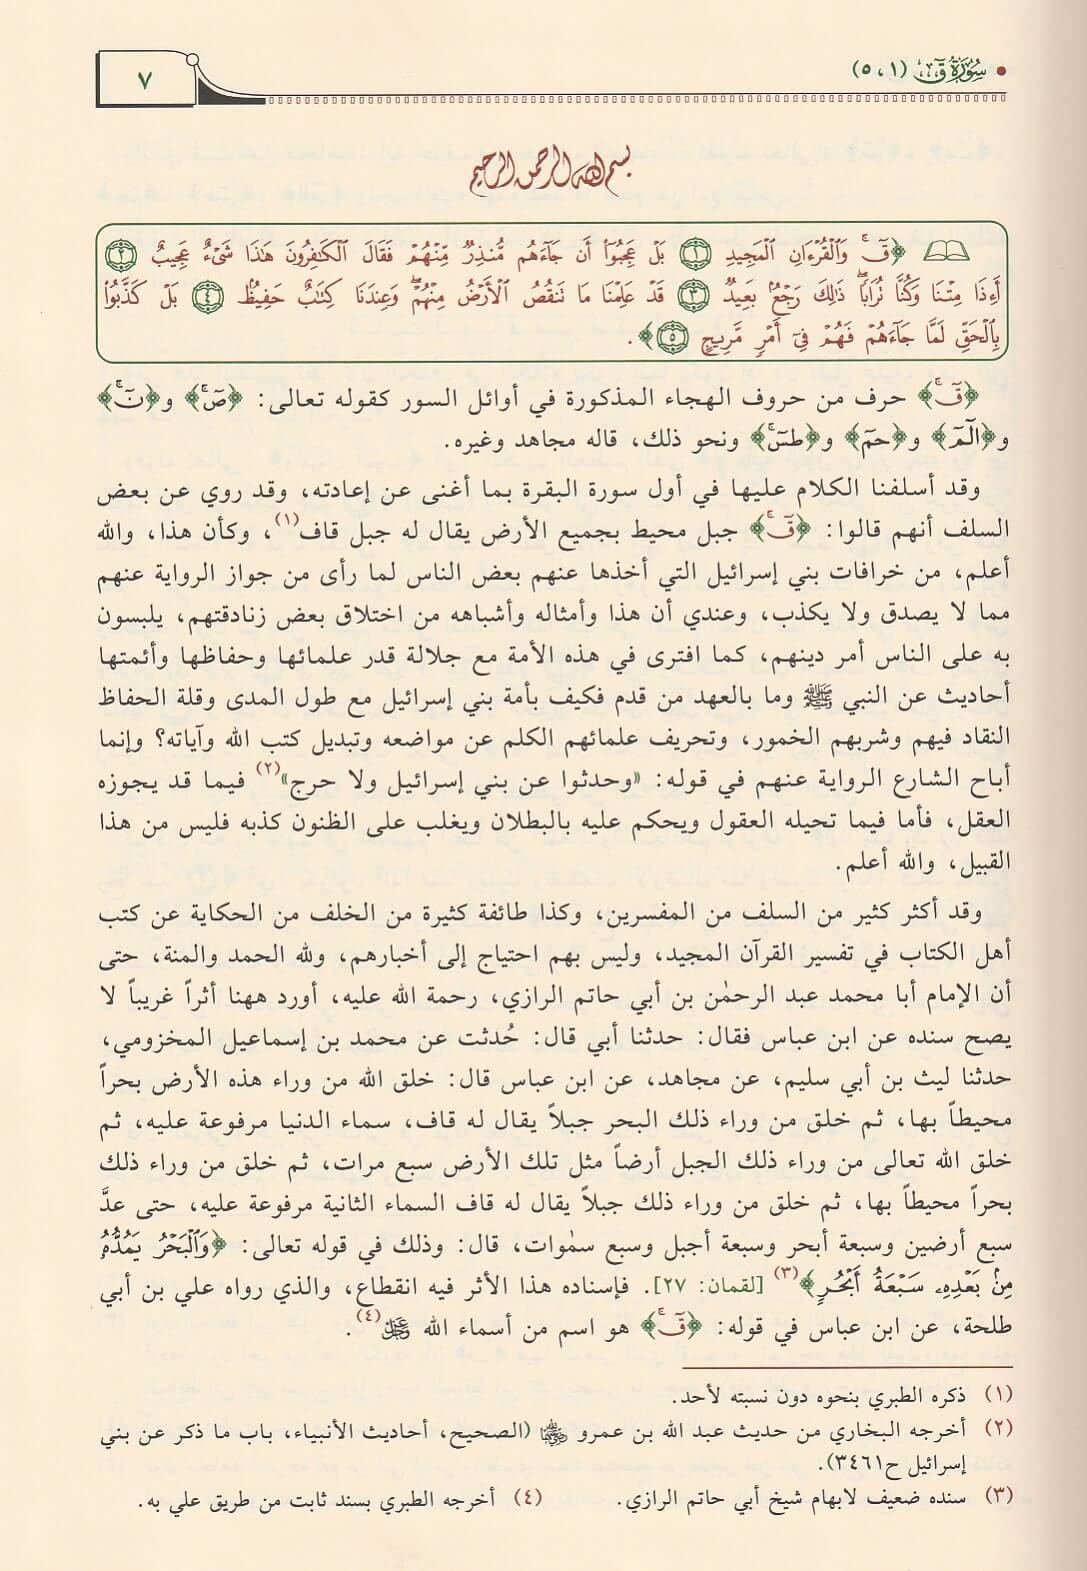 سُورَةُ قٓ (١، ٥)
٧
بسم الله الرحمن الرحيم
﴿قٓۚ وَالْقُرْءَانِ الْمَجِيدِ ﴿١﴾ بَلْ عَجِبُوٓا۟ أَن جَآءَهُم مُّنذِرٌ مِّنْهُمْ فَقَالَ الْكَٰفِرُونَ هَٰذَا شَىْءٌ عَجِيبٌ ﴿٢﴾
أَءِذَا مِتْنَا وَكُنَّا تُرَابًاۖ ذَٰلِكَ رَجْعٌۢ بَعِيدٌ ﴿٣﴾ قَدْ عَلِمْنَا مَا تَنقُصُ الْأَرْضُ مِنْهُمْۖ وَعِندَنَا كِتَٰبٌ حَفِيظٌۢ ﴿٤﴾ بَلْ كَذَّبُوا۟
بِالْحَقِّ لَمَّا جَآءَهُمْ فَهُمْ فِىٓ أَمْرٍ مَّرِيجٍ ﴿٥﴾﴾.
﴿قٓۚ﴾ حرف من حروف الهجاء المذكورة في أوائل السور كقوله تعالى: ﴿صٓۚ﴾ و﴿نٓۚ﴾
و﴿الٓمٓ﴾ و﴿حمٓ﴾ و﴿طسٓۚ﴾ ونحو ذلك، قاله مجاهد وغيره.
وقد أسلفنا الكلام عليها في أول سورة البقرة بما أغنى عن إعادته، وقد روي عن بعض
السلف أنهم قالوا: ﴿قٓۚ﴾ جبل محيط بجميع الأرض يقال له جبل قاف(١)، وكأن هذا، والله
أعلم، من خرافات بني إسرائيل التي أخذها عنهم بعض الناس لما رأى من جواز الرواية عنهم
مما لا يصدق ولا يكذب، وعندي أن هذا وأمثاله وأشباهه من اختلاق بعض زنادقتهم، يلبسون
به على الناس أمر دينهم، كما افترى في هذه الأمة مع جلالة قدر علمائها وحفاظها وأئمتها
أحاديث عن النبي ﷺ وما بالعهد من قدم فكيف بأمة بني إسرائيل مع طول المدى وقلة الحفاظ
النقاد فيهم وشربهم الخمور، وتحريف علمائهم الكلم عن مواضعه وتبديل كتب الله وآياته؟ وإنما
أباح الشارع الرواية عنهم في قوله: «وحدثوا عن بني إسرائيل ولا حرج»(٢) فيما قد يجوزه
العقل، فأما فيما تحيله العقول ويحكم عليه بالبطلان ويغلب على الظنون كذبه فليس من هذا
القبيل، والله أعلم.
وقد أكثر كثير من السلف من المفسرين، وكذا طائفة كثيرة من الخلف من الحكاية عن كتب
أهل الكتاب في تفسير القرآن المجيد، وليس بهم احتياج إلى أخبارهم، ولله الحمد والمنة، حتى
أن الإمام أبا محمد عبد الرحمٰن بن أبي حاتم الرازي، رحمة الله عليه، أورد ههنا أثراً غريباً لا
يصح سنده عن ابن عباس فقال: حدثنا أبي قال: حُدثت عن محمد بن إسماعيل المخزومي،
حدثنا ليث بن أبي سليم، عن مجاهد، عن ابن عباس قال: خلق الله من وراء هذه الأرض بحراً
محيطاً بها، ثم خلق من وراء ذلك البحر جبلاً يقال له قاف، سماء الدنيا مرفوعة عليه، ثم
خلق الله تعالى من وراء ذلك الجبل أرضاً مثل تلك الأرض سبع مرات، ثم خلق من وراء ذلك
بحراً محيطاً بها، ثم خلق من وراء ذلك جبلاً يقال له قاف السماء الثانية مرفوعة عليه، حتى عدَّ
سبع أرضين وسبعة أبحر وسبعة أجبل وسبع سمٰوات، قال: وذلك في قوله تعالى: ﴿وَالْبَحْرُ يَمُدُّهُۥ
مِنۢ بَعْدِهِۦ سَبْعَةُ أَبْحُرٍ﴾(٣) [لقمان: ٢٧]. فإسناده هذا الأثر فيه انقطاع، والذي رواه علي بن أبي
طلحة، عن ابن عباس في قوله: ﴿قٓۚ﴾ هو اسم من أسماء الله عز وجل(٤).
(١) ذكره الطبري بنحوه دون نسبته لأحد.
(٢) أخرجه البخاري من حديث عبد الله بن عمرو رضي الله عنهما (الصحيح، أحاديث الأنبياء، باب ما ذكر عن بني
إسرائيل ح٣٤٦١).
(٣) سنده ضعيف لابهام شيخ أبي حاتم الرازي. (٤) أخرجه الطبري بسند ثابت من طريق علي به.